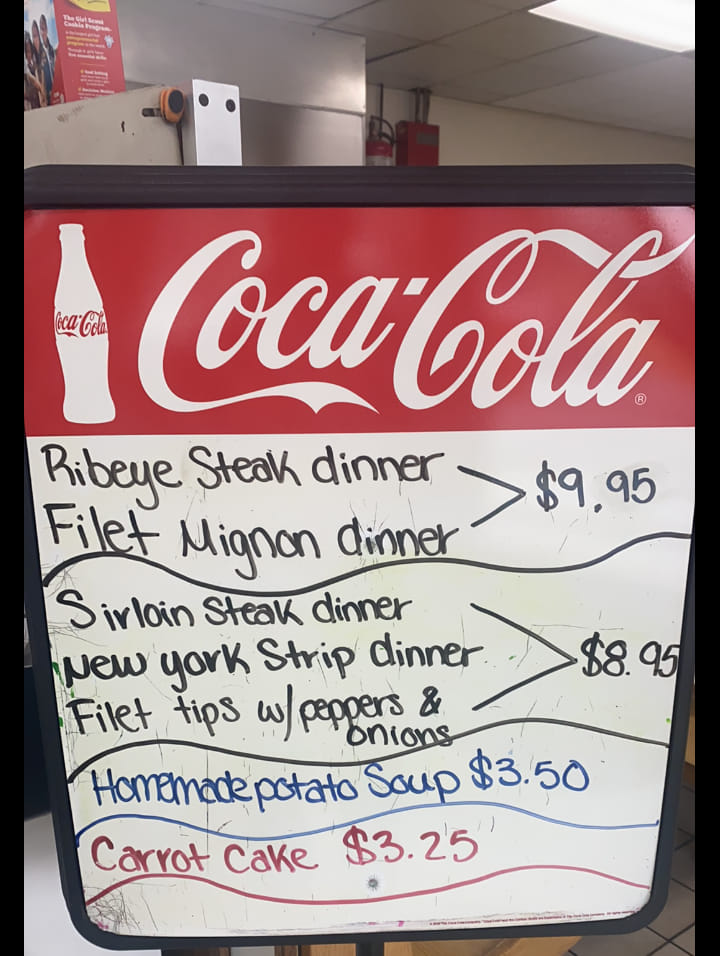 The Girl Scout
Cookie Program.
Coca-Cola
Coca-Cola
®
Ribeye Steak dinner
Filet Mignon dinner
$9.95
Sirloin Steak dinner
New york Strip dinner
Filet tips w/peppers &
onions
$8.95
Homemade potato Soup $3.50
Carrot Cake $3.25